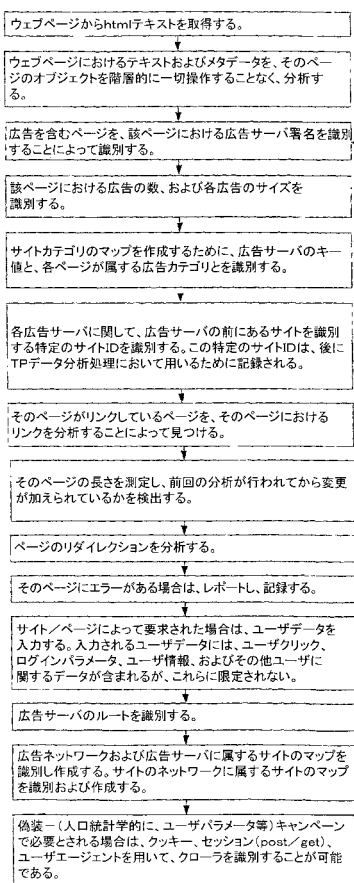 ウェブページからhtmlテキストを取得する。
ウェブページにおけるテキストおよびメタデータを、そのペー
ジのオブジェクトを階層的に一切操作することなく、分析す
る。
広告を含むページを、該ページにおける広告サーバ署名を識別
することによって識別する。
該ページにおける広告の数、および各広告のサイズを
識別する。
サイトカテゴリのマップを作成するために、広告サーバのキー
値と、各ページが属する広告カテゴリとを識別する。
各広告サーバに関して、広告サーバの前にあるサイトを識別
する特定のサイトIDを識別する。この特定のサイトIDは、後に
TPデータ分析処理において用いるために記録される。
そのページがリンクしているページを、そのページにおける
リンクを分析することによって見つける。
そのページの長さを測定し、前回の分析が行われてから変更
が加えられているかを検出する。
ページのリダイレクションを分析する。
そのページにエラーがある場合は、レポートし、記録する。
サイト/ページによって要求された場合は、ユーザデータを
入力する。入力されるユーザデータには、ユーザクリック、
ログインパラメータ、ユーザ情報、およびその他ユーザに
関するデータが含まれるが、これらに限定されない。
広告サーバのルートを識別する。
広告ネットワークおよび広告サーバに属するサイトのマップを
識別し作成する。サイトのネットワークに属するサイトのマップ
を識別および作成する。
偽装-(人口統計学的に、ユーザパラメータ等)キャンペーン
で必要とされる場合は、クッキー、セッション(post/get)、
ユーザエージェントを用いて、クローラを識別することが可能
である。